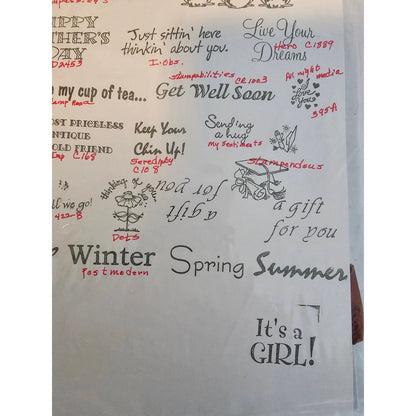 Just sittin' here
thinkin' about you.
I.Obs.
Live Your
Dreams
Hero C1889
stampabilities
CR1003
All night media
I
Love
You
395-A
my cup of tea...
Get Well Soon
ST PRICELESS
NTIQUE
OLD FRIEND
C168
Keep Your
Chin Up!
Serendipity
C108
Sending
a hug
my Sentiments
Stampendous
ll we go!
422-B
thinking of you
Dots
a gift
for you
a gift
for you
Winter
Spring
Summer
Post modern
It's a
GIRL!